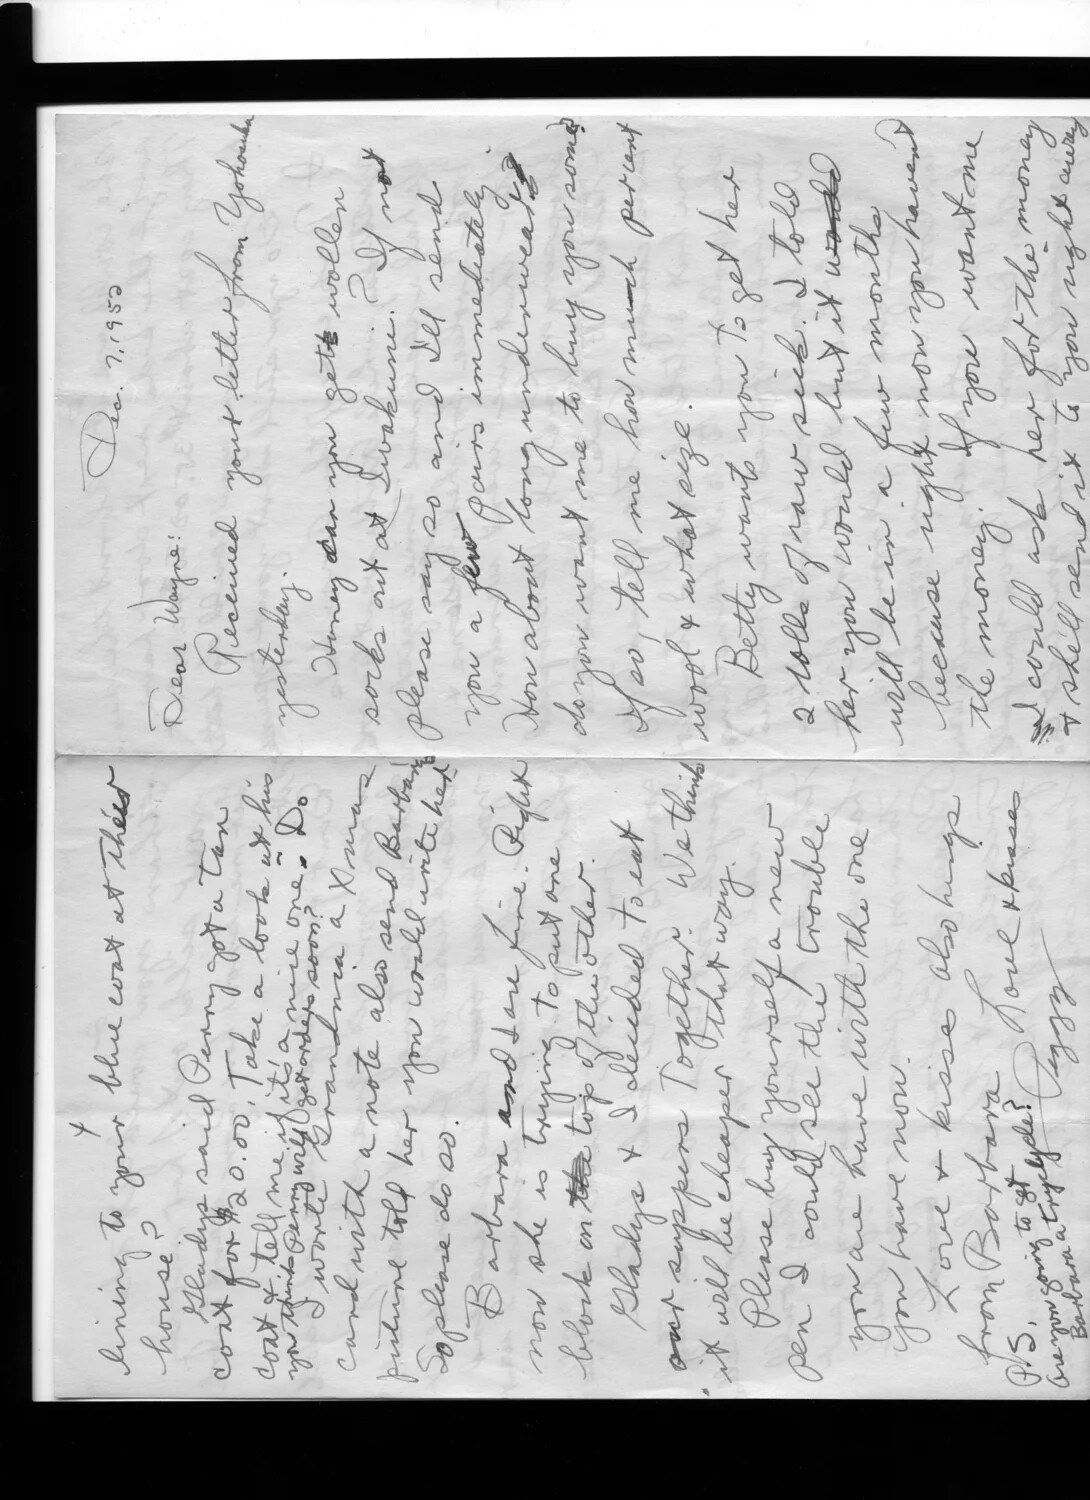 Dec. 7, 1952
Dear Wayne:
Received your letter from Yohouka
yesterday.
Honey can you get wollen
socks out at Iwakuni? If not
please say so and I'll send
you a few pairs immediately
How about long underwear
do you want me to buy you some?
If so, tell me how much percent
wool & what size.
Betty wants you to get her
2 rolls of raw sick. I told
her you would but it would
will be in a few months
because right now you havent
the money. If you want me
I could ask her for the money
& she'll send it to you right away
lining to your blue coat at their
house?
Gladys said Perry got a tan
coat for $20.00, Take a look at his
coat & tell me if it's a nice one. Do
you think Perry will get orders soon?
I wrote Grandma a Xmas
card with a note also send Barbara
picture told her you would write her
So please do so.
Barbara and I are fine. Right
now she is trying to put one
block on the top of the other.
Gladys & I decided to eat
our suppers Together. We think
it will be cheaper that way.
Please buy yourself a new
pen I could see the trouble
you are have with the one
you have now.
Love & kisses also hugs
from Barbara
Love & kisses
Peggy
P.S. Are you going to get
Barbara a tricylcle?